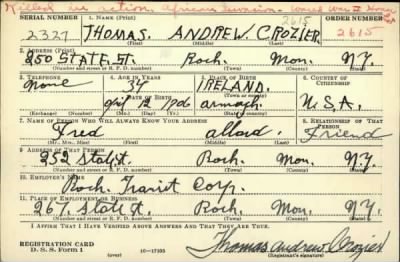 Killed in action African Invasion World War II Hero
SERIAL NUMBER 1. NAME (Print) ORDER NUMBER
2615
2327 THOMAS. ANDREW. CROZIER. 2615
(First) (Middle) (Last)
2. ADDRESS (Print)
250 STATE. ST. Roch. Mon. N.Y.
(Number and street or R. F. D. number) (Town) (County) (State)
3. TELEPHONE 4. AGE IN YEARS 5. PLACE OF BIRTH 6. COUNTRY OF CITIZENSHIP
none 34 IRELAND.
(Town or county)
DATE OF BIRTH
April 12 1906 armagh. U.S.A.
(Mo.) (Day) (Yr.) (State or country)
7. NAME OF PERSON WHO WILL ALWAYS KNOW YOUR ADDRESS 8. RELATIONSHIP OF THAT PERSON
Fred allard. Friend
(Mr., Mrs., Miss) (First) (Middle) (Last)
9. ADDRESS OF THAT PERSON
252 State St. Roch. Mon. N.Y.
(Number and street or R. F. D. number) (Town) (County) (State)
10. EMPLOYER'S NAME
Roch. Transit Corp.
11. PLACE OF EMPLOYMENT OR BUSINESS
267 State St. Roch. Mon. N.Y.
(Number and street or R. F. D. number) (Town) (County) (State)
I AFFIRM THAT I HAVE VERIFIED ABOVE ANSWERS AND THAT THEY ARE TRUE.
REGISTRATION CARD
D. S. S. Form 1 (over) 16—17105 Thomas Andrew Crozier
(Registrant's signature)